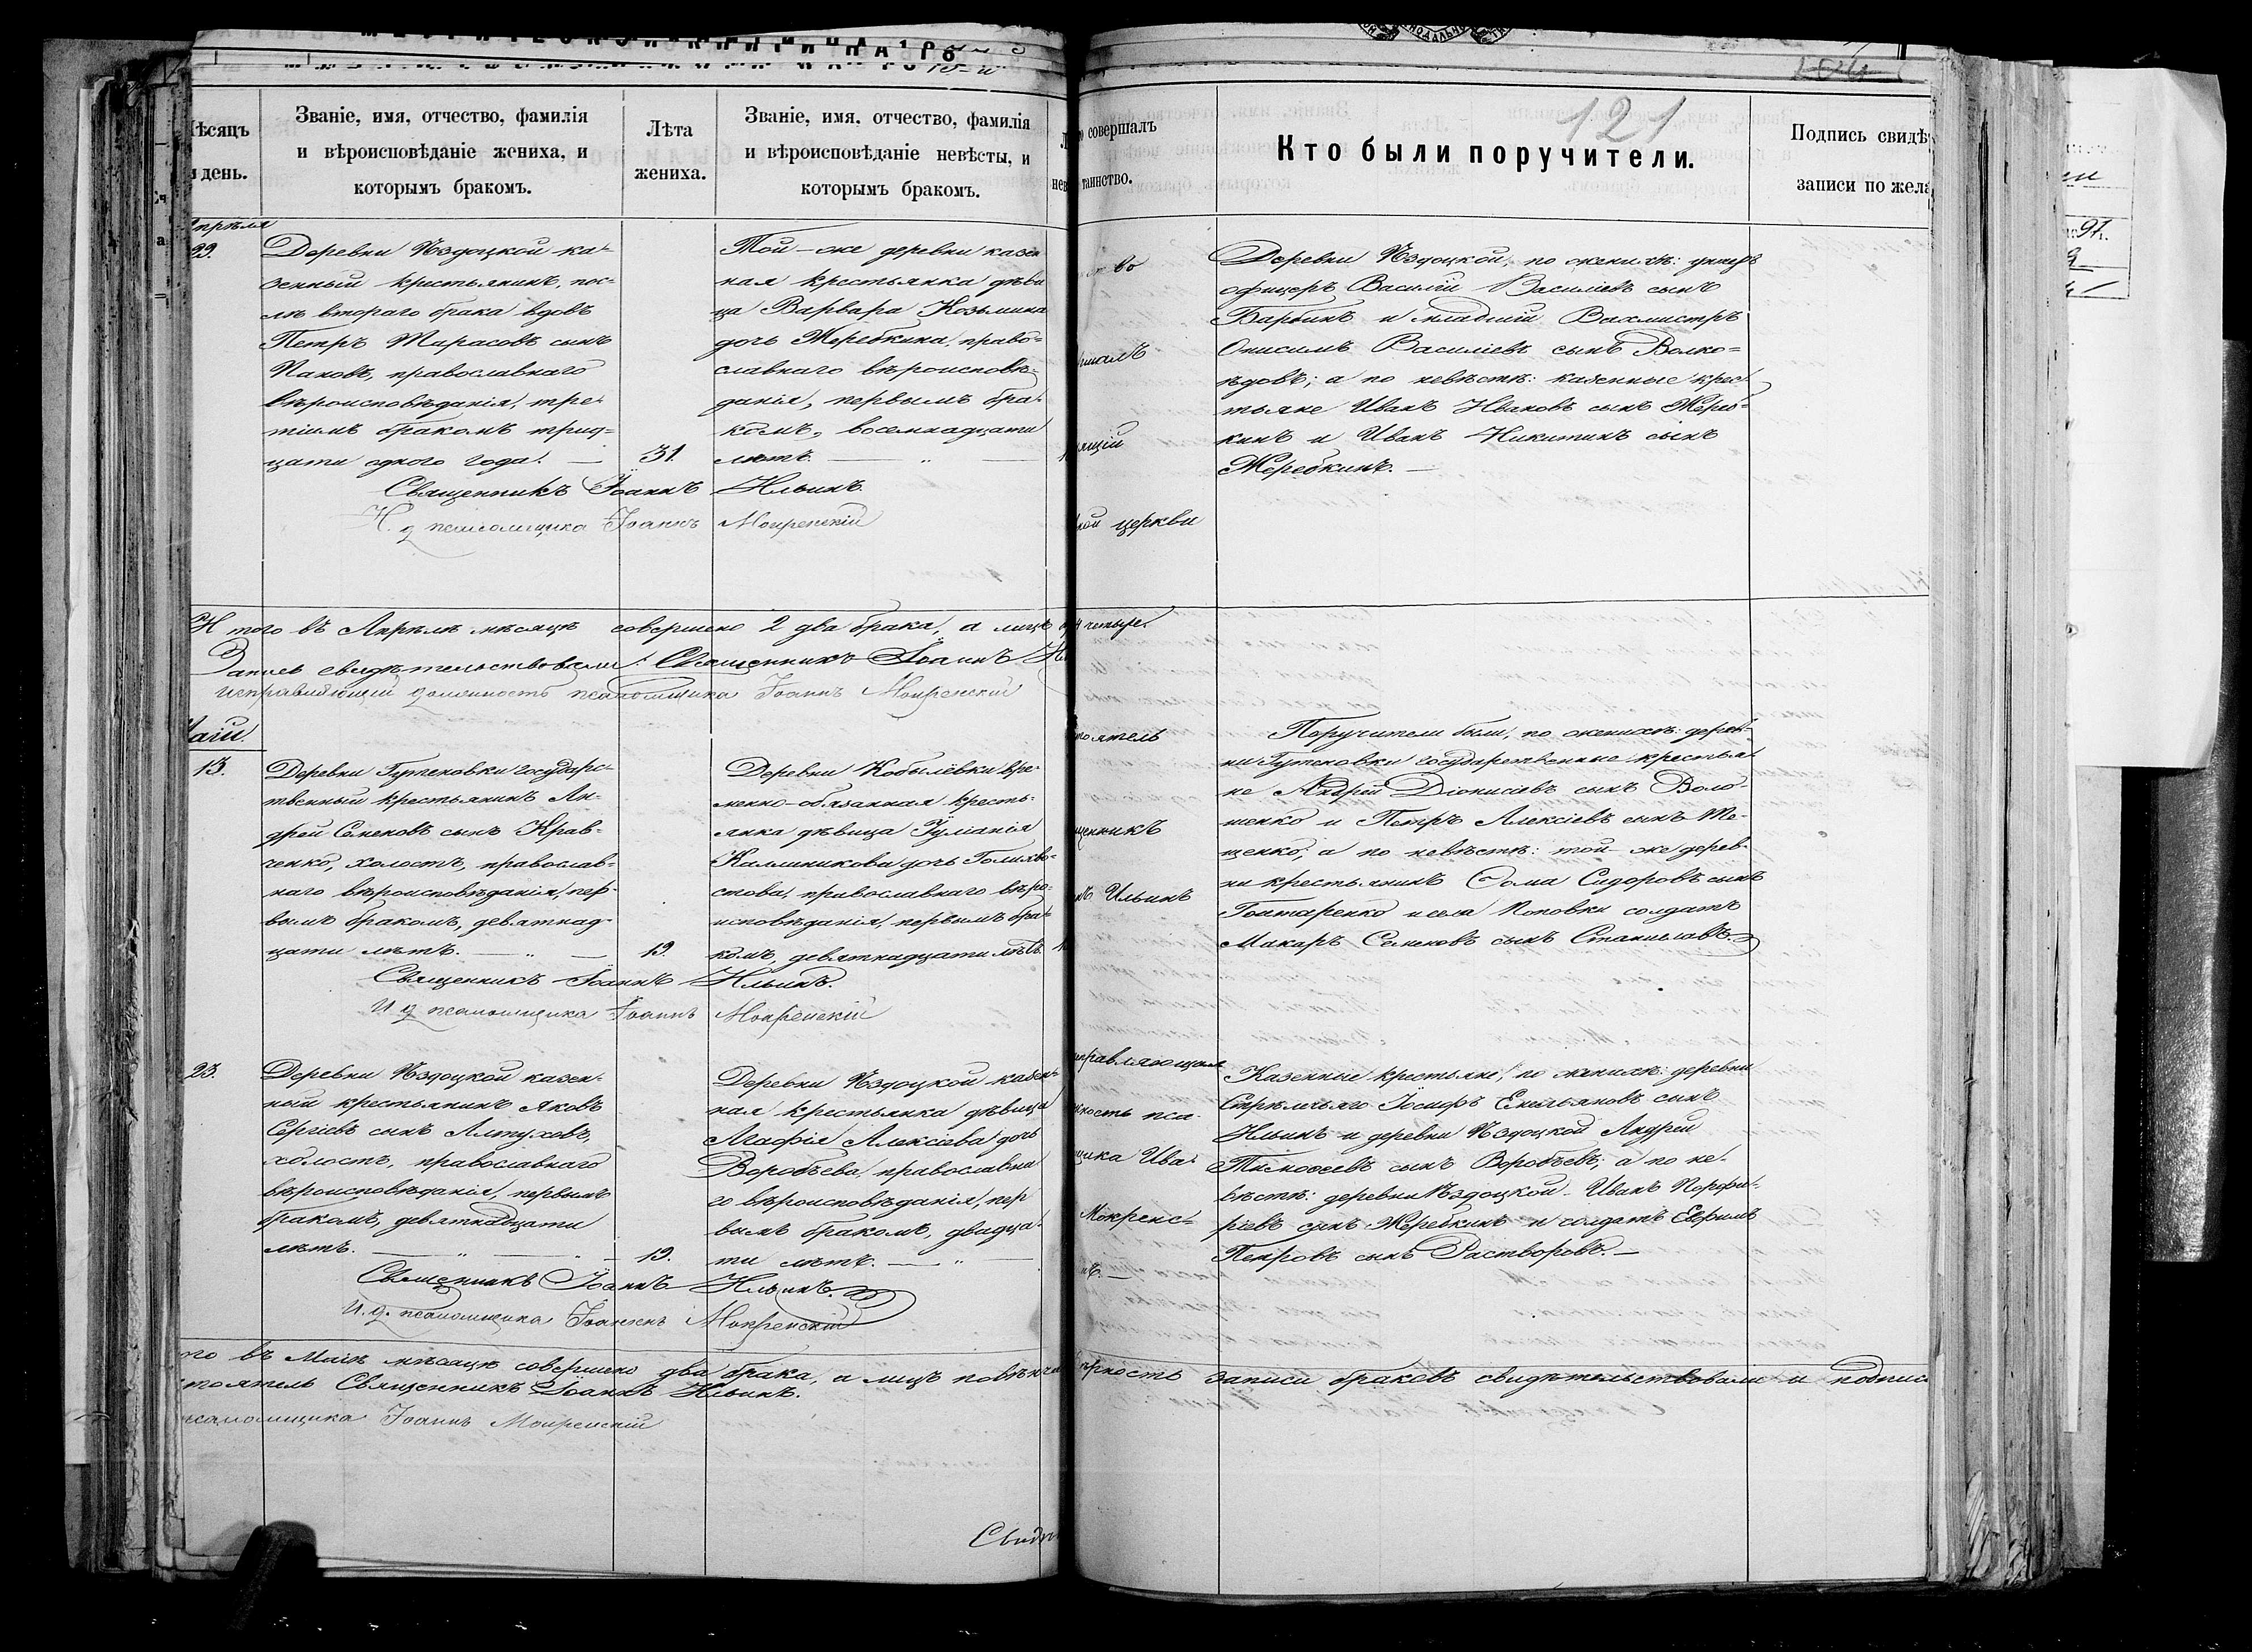 Мѣсяцъ и день.
Званіе, имя, отчество, фамилія
и вѣроисповѣданіе жениха, и
которымъ бракомъ.
Лѣта
жениха.
Званіе, имя, отчество, фамилія
и вѣроисповѣданіе невѣсты, и
которымъ бракомъ.
совершалъ
таинство.
Кто были поручители.
121
Подпись свидѣ
записи по жела
Апрѣля
29.
Деревни Ѣздоцкой ка-
зенный крестьянинъ, пос-
лѣ втораго брака вдовъ
Петръ Тарасовъ сынъ
Паковъ, православнаго
вѣроисповѣданія, тре-
тіимъ бракомъ трид-
цати одного года.
31.
Той-же деревни казен
ная крестьянка дѣви
ца Варвара Козьмина
дочь Жеребкина, право-
славнаго вѣроисповѣ-
данія, первымъ бра-
комъ, восемнадцати
лѣтъ.
Священникъ Іоаннъ Ильинъ.
И. д псаломщика Іоаннъ Мокренскій
ство
шалъ
ящій
кой церкви
Деревни Ѣздоцкой, по женихѣ: унтеръ
офицеръ Василій Василіевъ сынъ
Барбинъ и младшій Вахмистръ
Онисимъ Василіевъ сынъ Волко-
ѣдовъ; а по невѣстѣ: казенные крес-
тьяне Иванъ Ивановъ сынъ Жереб-
кинъ и Иванъ Никитинъ сынъ
Жеребкинъ.
И того въ Апрѣлѣ мѣсяцѣ совершено 2 два брака, а лицъ четыре.
Запись свидѣтельствовали: Священникъ Іоаннъ
исправляющій должность псаломщика Іоаннъ Мокренскій
Маій.
13.
Деревни Гутеновки государс-
твенный крестьянинъ Ан-
дрей Семеновъ сынъ Крав-
ченко, холостъ, православ-
наго вѣроисповѣданія, пер-
вымъ бракомъ, девятнад-
цати лѣтъ.
19.
Деревни Кобылёвки вре-
менно-обязанная кресть-
янка дѣвица Іуліанія
Каллиникова дочь Голихво-
стова, православнаго вѣро-
исповѣданія, первымъ бра-
комъ, девятнадцати лѣтъ.
Священникъ Іоаннъ Ильинъ.
И д псаломщика Іоаннъ Мокренскій
стоятель
щенникъ
нъ Ильинъ
Поручители были, по женихѣ: дерев-
ни Гутеновки государственные крестья-
не Андрей Діонисіевъ сынъ Воло-
шенко и Петръ Алексіевъ сынъ Же-
щенко, а по невѣстѣ: той-же дерев-
ни крестьянинъ Ѳома Сидоровъ сынъ
Гонтаренко и села Поповки солдатъ
Макаръ Семеновъ сынъ Станиславъ.
23.
Деревни Ѣздоцкой казен-
ный крестьянинъ Яковъ
Сергіевъ сынъ Алтуховъ,
холостъ, православнаго
вѣроисповѣданія, первымъ
бракомъ, девятнадцати
лѣтъ.
19.
Деревни Ѣздоцкой казен-
ная крестьянка дѣвица
Агафія Алексіева дочь
Воробьева, православна
го вѣроисповѣданія, пер
вымъ бракомъ, двадца-
ти лѣтъ.
Священникъ Іоаннъ Ильинъ.
И. д. псаломщика Іоаннъ Мокренскій
справляющій
жность пса-
щика Ива-
Мокренс-
Казенные крестьяне, по женихѣ: деревни
Стрѣлечьяго Іосифъ Емельяновъ сынъ
Ильинъ и деревни Ѣздоцкой Андрей
Тимоѳеевъ сынъ Воробьевъ; а по не-
вѣстѣ: деревни Ѣздоцкой Иванъ Порфи-
ріевъ сынъ Жеребкинъ и солдатъ Ефримъ
Петровъ сынъ Растворовъ.
того въ Маіѣ мѣсяцѣ совершено два брака, а лицъ повѣнча
вѣрность записи браковъ свидѣтельствовали и подпис
стоятель Священникъ Іоаннъ Ильинъ.
псаломщика Іоаннъ Мокренскій
Свидѣ